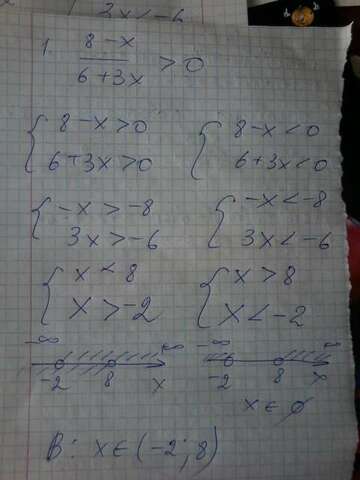 3x < -6
1. (8-x)/(6+3x) > 0
{ 8-x>0 { 8-x<0
6+3x>0 6+3x<0
{ -x > -8 { -x < -8
3x > -6 3x < -6
{ x < 8 { x > 8
x > -2 x < -2
-∞ ∞ -∞ ∞
-2 8 x -2 8 x
x ∈ ∅
В: x ∈ (-2; 8)